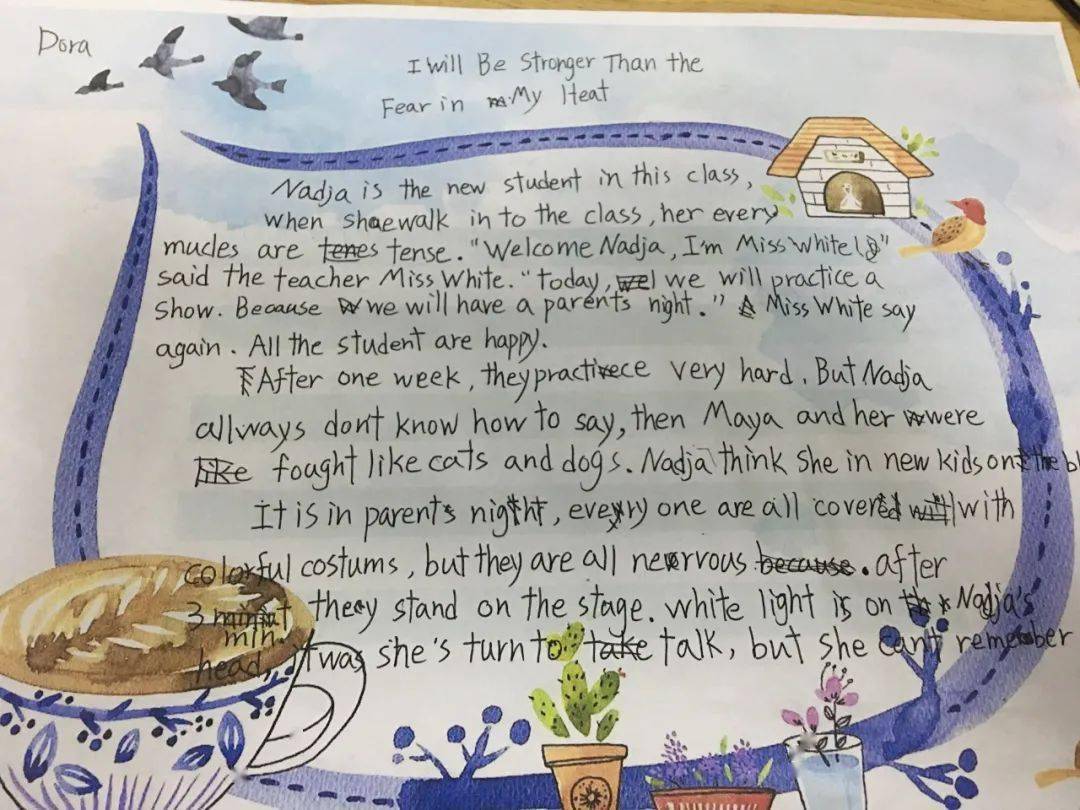 Dora
I Will Be Stronger Than the
Fear in My Heat
Nadja is the new student in this class,
when she walk in to the class, her every
mucles are tense. "Welcome Nadja, I'm Miss White!"
said the teacher Miss White. "Today, we will practice a
show. Because we will have a parents night." Miss White say
again. All the student are happy.
After one week, they practice very hard. But Nadja
allways don't know how to say, then Maya and her were
fought like cats and dogs. Nadja think she in new kids on the bl
It is in parents night, every one are all covered with
colorful costums, but they are all nervous. after
3 min. they stand on the stage. White light is on Nadja's
head, It was she's turn to talk, but she can't remember